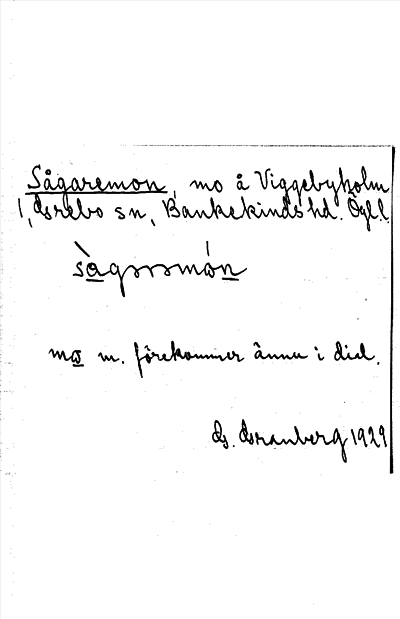 Sågaremon, mo å Viggebyholm
1, Grebo sn, Bankekinds hd. Ög.l.
m. förekommer ännu i dial.
G. Granberg 1929